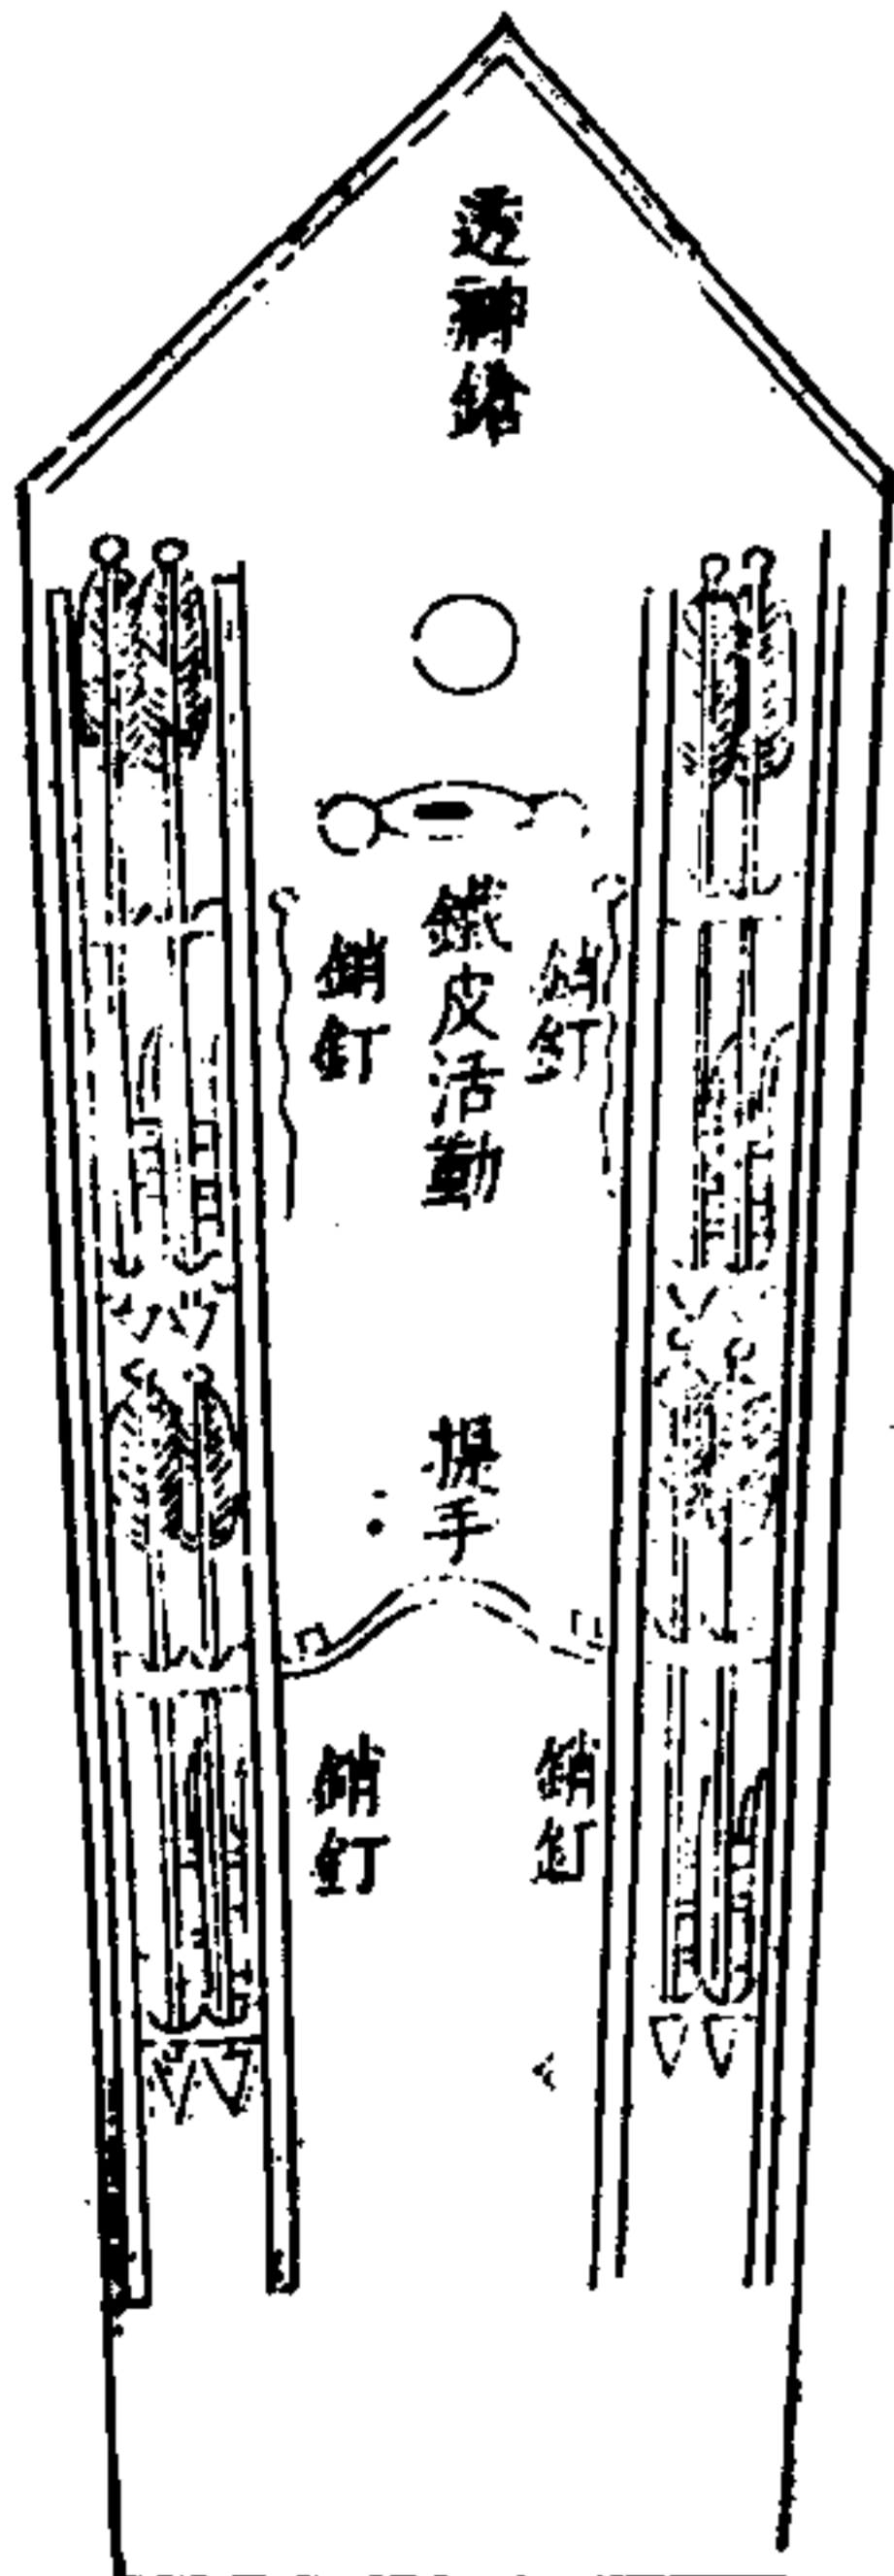 透神鎗
銷釘
鐵皮活動
銷釘
手
銷釘
銷釘